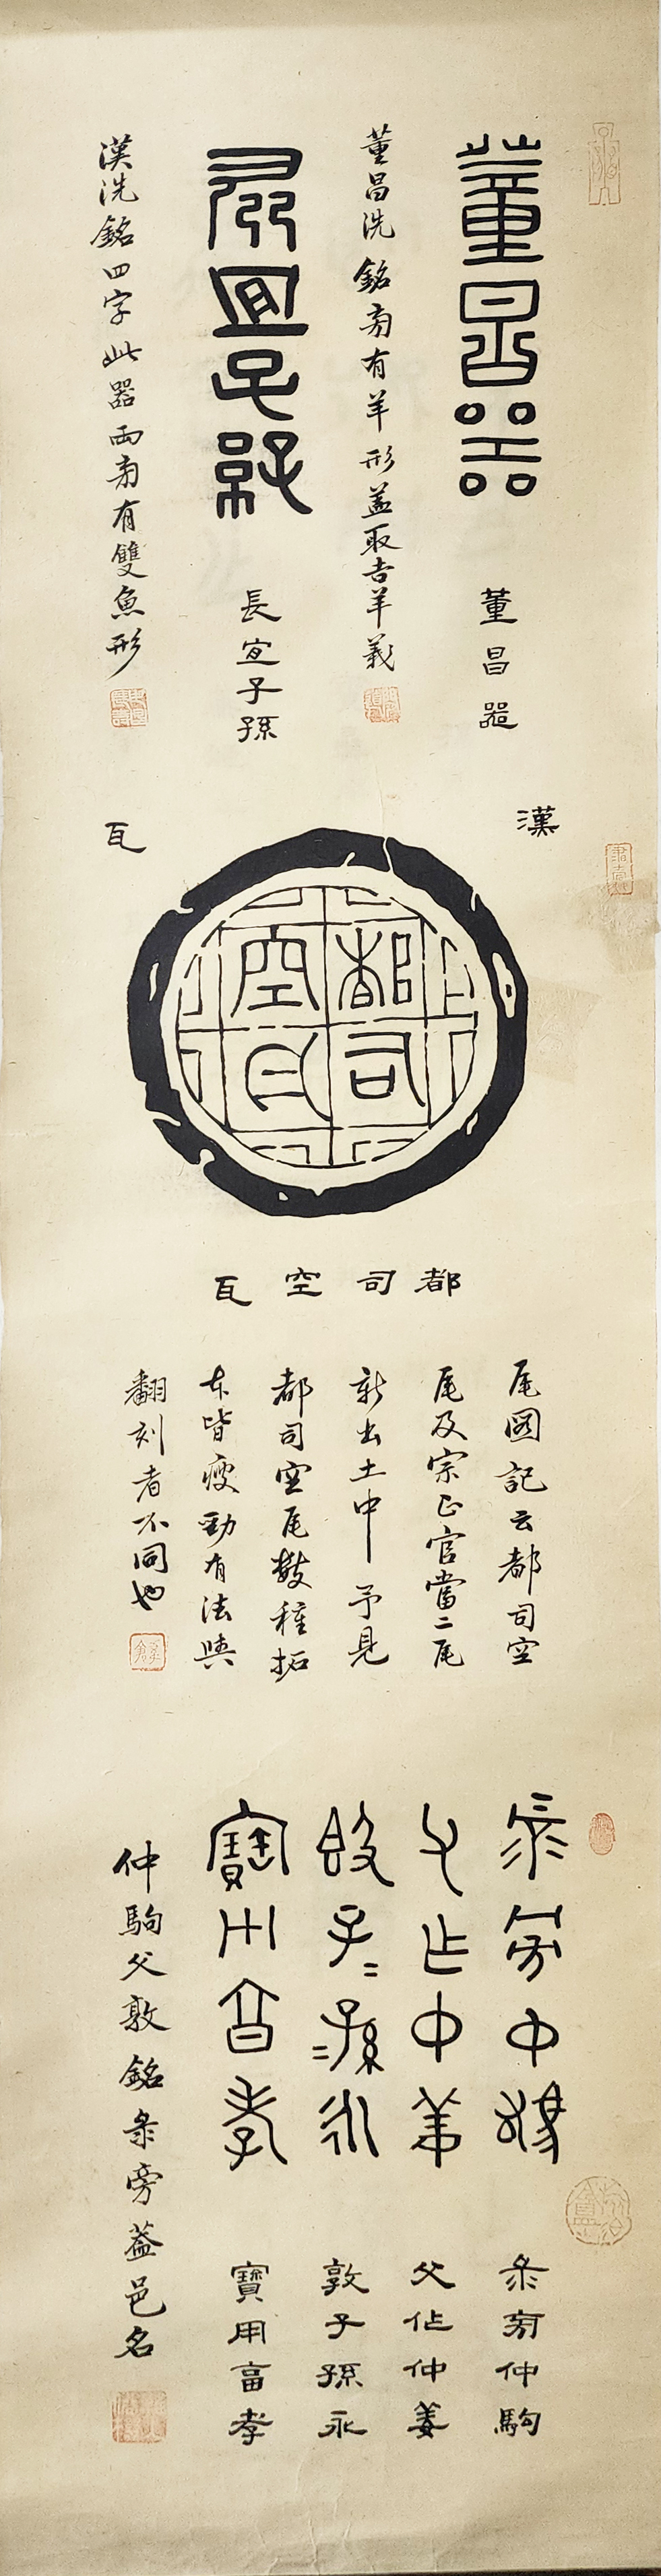 董昌器
董昌器
董昌洗銘旁有羊形蓋取吉羊義
長宜子孫
長宜子孫
漢洗銘四字此器兩旁有雙魚形
漢
瓦
都司空瓦
都司空瓦
瓦圖記云都司空
瓦及宗正官當二瓦
新出土中予見
都司空瓦數種拓
本皆瘦勁有法與
翻刻者不同也
旁中
父作中姜
敦子〻孫〻永
寶用享孝
旁仲駒
父作仲姜
敦子孫永
寶用享孝
仲駒父敦銘旁蓋邑名